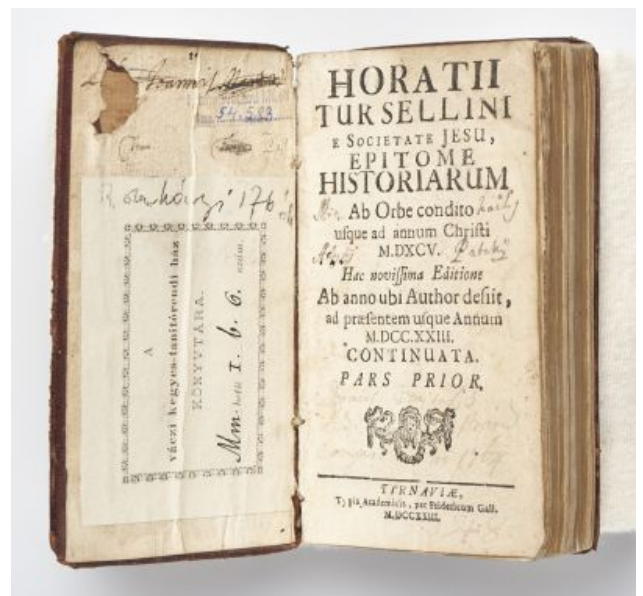 Joannis
54.593
176
A
váczi kegyes-tanitórendi ház
KÖNYVTÁRA.
Mm. I. b. 6. szám.
HORATII
TURSELLINI
E SOCIETATE JESU,
EPITOME
HISTORIARUM
Ab Orbe condito
usque ad annum Christi
M.DXCV.
Hac novissima Editione
Ab anno ubi Author desiit,
ad præsentem usque Annum
M.DCC.XXIII.
CONTINUATA.
PARS PRIOR.
TYRNAVIÆ,
Typis Academicis, per Fridericum Gall.
M.DCCXXIII.